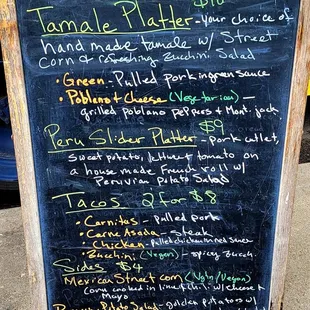 Tamale Platter - Your choice of
hand made tamale w/ Street
Corn & refreshing Zucchini Salad
• Green - Pulled pork in green sauce
• Poblano & Cheese (Vegetarian)
grilled poblano peppers & Mont. jack
$9
Peru Slider Platter - pork cutlet,
sweet potato, lettuce & tomato on
a house made French roll w/
Peruvian Potato Salad
Tacos 2 for $8
• Carnitas - Pulled pork
• Carne Asada - Steak
• Chicken - Pulled chicken in red sauce
• Zucchini (Vegan) - spicy Zucch.
Sides $4
Mexican Street corn (Vgtn/Vegan)
Corn cooked in lime & chili w/ cheese &
Mayo
Potato Salad - Golden potatoes w/